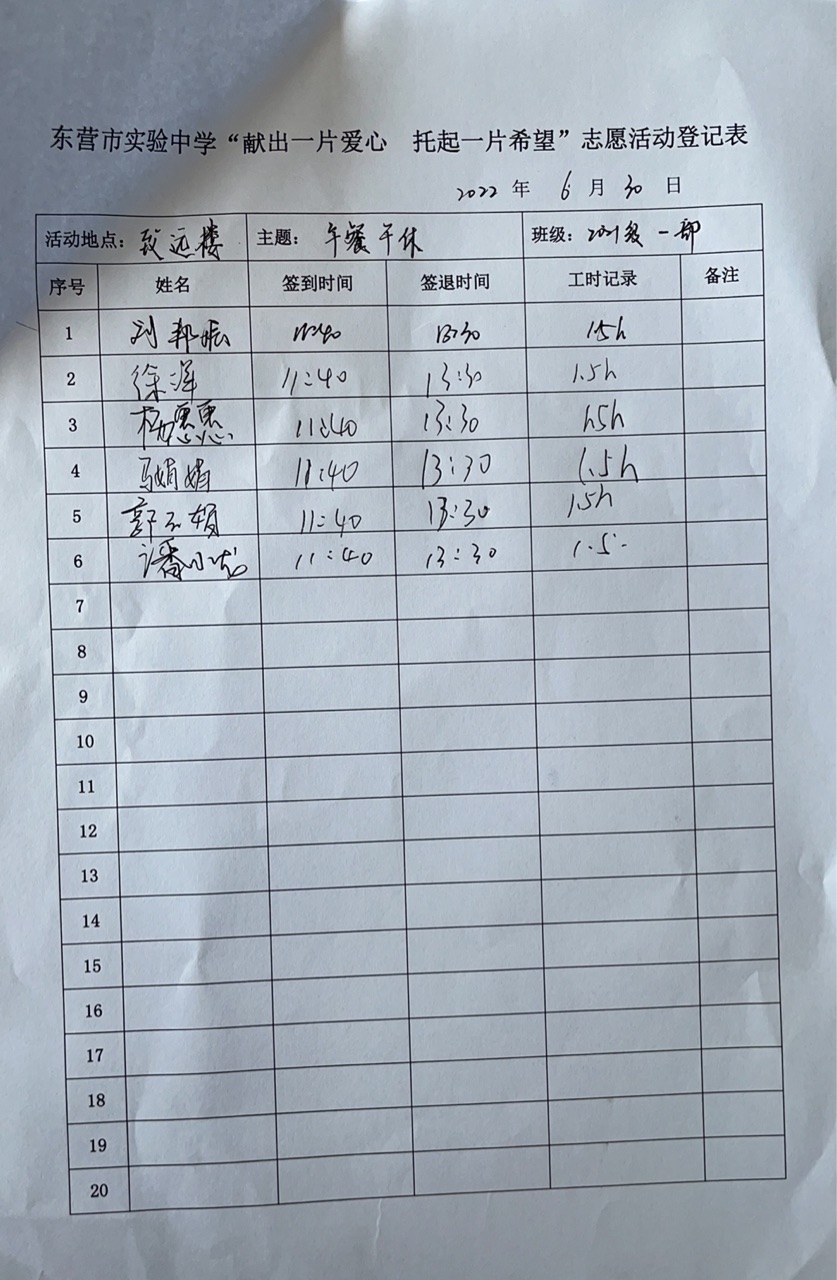 东营市实验中学“献出一片爱心 托起一片希望”志愿活动登记表
2022 年 6 月 30 日
活动地点：致远楼 主题：午餐午休 班级：2021级一部
序号 姓名 签到时间 签退时间 工时记录 备注
1 刘邦振 11:40 13:30 1.5h
2 徐泽 11:40 13:30 1.5h
3 杨惠惠 11:40 13:30 1.5h
4 马娟娟 11:40 13:30 1.5h
5 11:40 13:30 1.5h
6 潘小龙 11:40 13:30 1.5
7
8
9
10
11
12
13
14
15
16
17
18
19
20